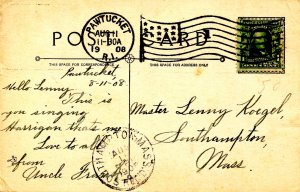 POST CARD
PAWTUCKET
AUG 11
11-30A
1908
R.I.
THIS SPACE FOR CORRESPONDENCE
THIS SPACE FOR ADDRESS ONLY
Pawtucket,
8-11-08
Hello Lenny
This is
you singing
Harrigan that's me
Love to all
from
Uncle Fran
Master Lenny Kogel,
Southampton,
Mass.